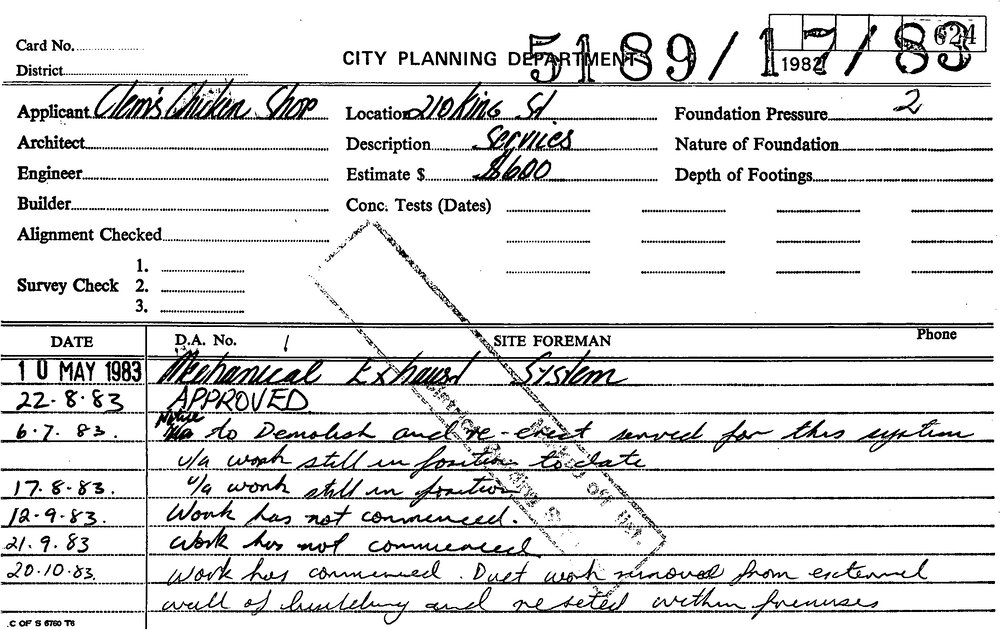 Card No.
624
CITY PLANNING DEPARTMENT
5189/17/83
1982
District
Applicant Clem's Chicken Shop
Location 210 King St
Foundation Pressure 2
Architect
Description Services
Nature of Foundation
Engineer
Estimate $ $600
Depth of Footings
Builder
Conc. Tests (Dates)
Alignment Checked
1.
Survey Check 2.
3.
DATE D.A. No. SITE FOREMAN Phone
10 MAY 1983 Mechanical Exhaust System
22·8·83 APPROVED
Notice
6·7. 83. to Demolish and re-erect served for this system
u/a work still in position to date
17·8·83. u/a work still in position
12·9·83. Work has not commenced.
21.9.83 Work has not commenced
20·10·83. Work has commenced. Duct work removed from external
wall of building and reseted within premises
.C OF S 6760 T6